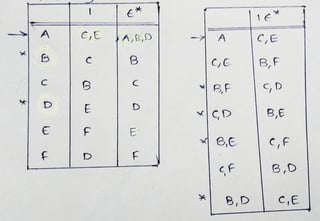 1 ε*
→ A C,E A,B,D
* B C B
C B C
* D E D
E F E
F D F
1ε*
→ A C,E
C,E B,F
* B,F C,D
* C,D B,E
* B,E C,F
C,F B,D
* B,D C,E